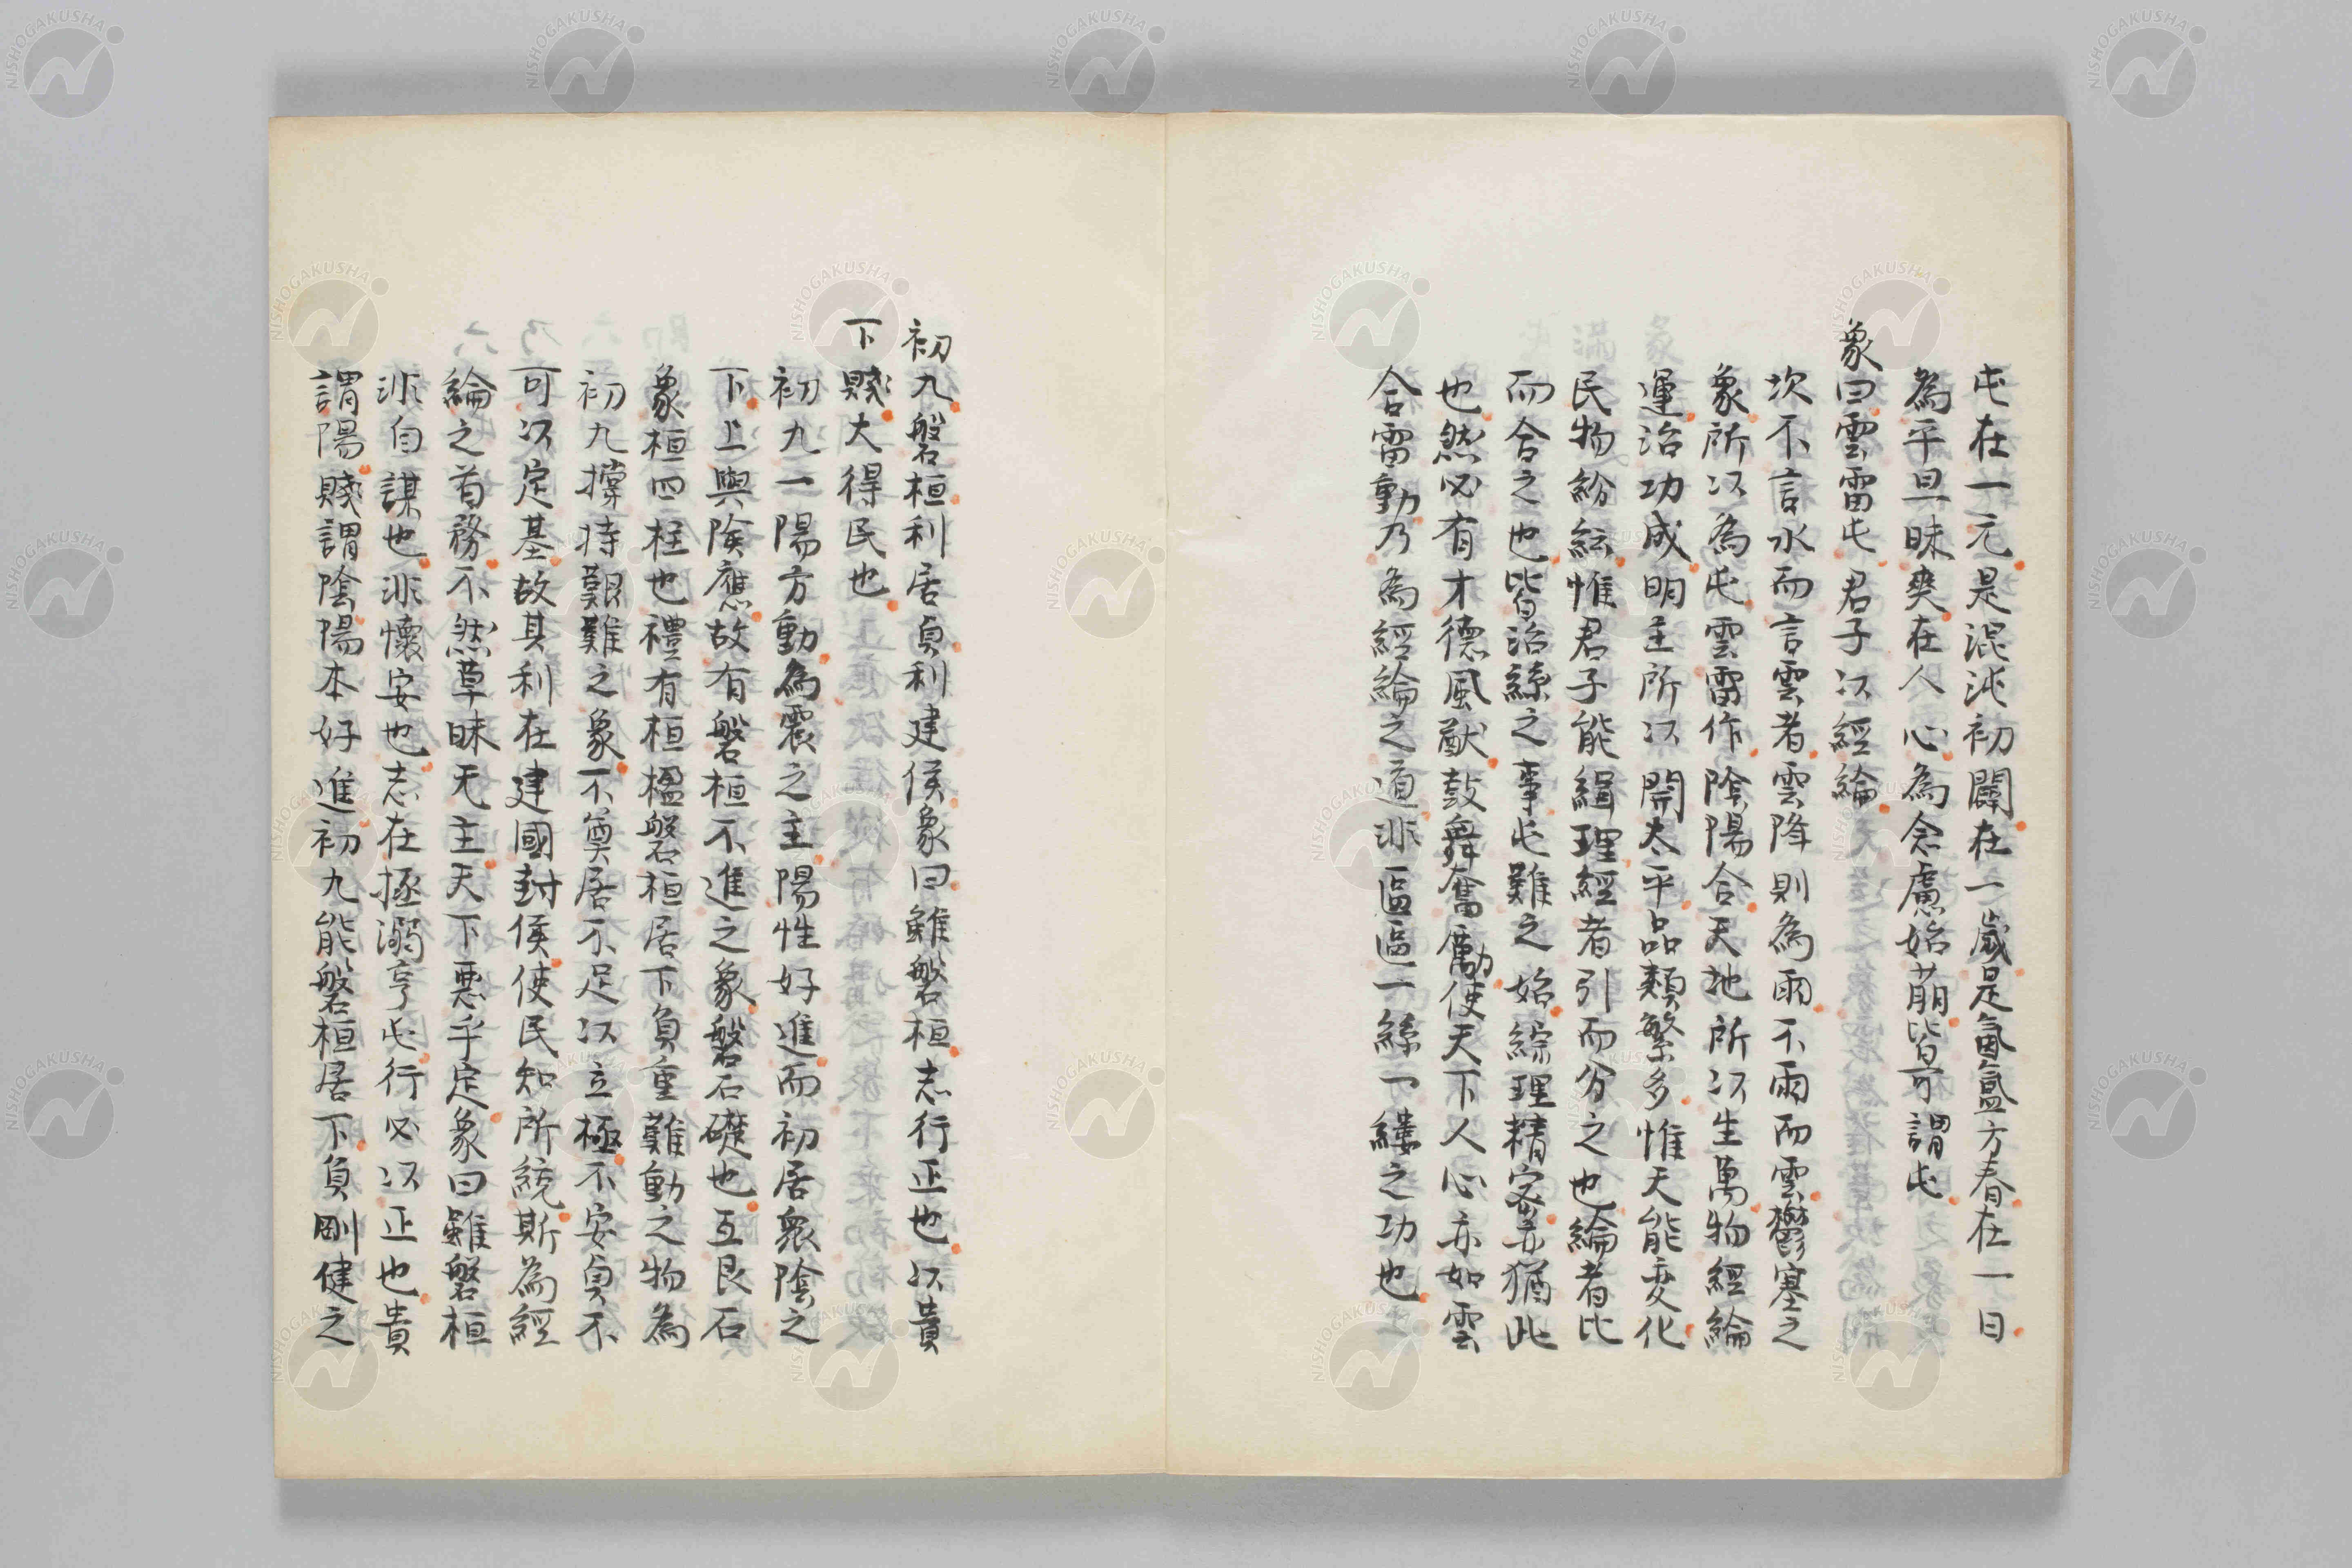 屯在一元是混沌初闢在一歲是氤氳方春在一日
為平旦昧爽在人心為念慮始萌皆可謂屯
象曰雲雷屯君子以經綸
坎不言水而言雲者雲降則為雨不雨而雲鬱塞之
象所以為屯雲雷作陰陽合天地所以生萬物經綸
運治功成明主所以開太平品類繁多惟天能変化
民物紛紜惟君子能緝理經者引而分之也綸者比
而合之也皆治絲之事屯難之始綜理精密亦猶此
也然必有才德風猷鼓舞奮勵使天下人心亦如雲
合雷動乃為經綸之道非區區一絲一縷之功也
初九磐桓利居貞利建侯象曰雖磐桓志行正也以貴
下賤大得民也
初九一陽方動為震之主陽性好進而初居衆陰之
下上與險應故有磐桓不進之象磐石礎也互艮石
象桓四柱也禮有桓楹磐桓居下負重難動之物為
初九撐持艱難之象不奠居不足以立極不安貞不
可以定基故其利在建國封侯使民知所統斯為經
綸之首務不然草昧无主天下惡乎定象曰雖磐桓
非自謀也非懷安也志在拯溺亨屯行必以正也貴
謂陽賤謂陰陽本好進初九能磐桓居下負剛健之
NISHOGAKUSHA